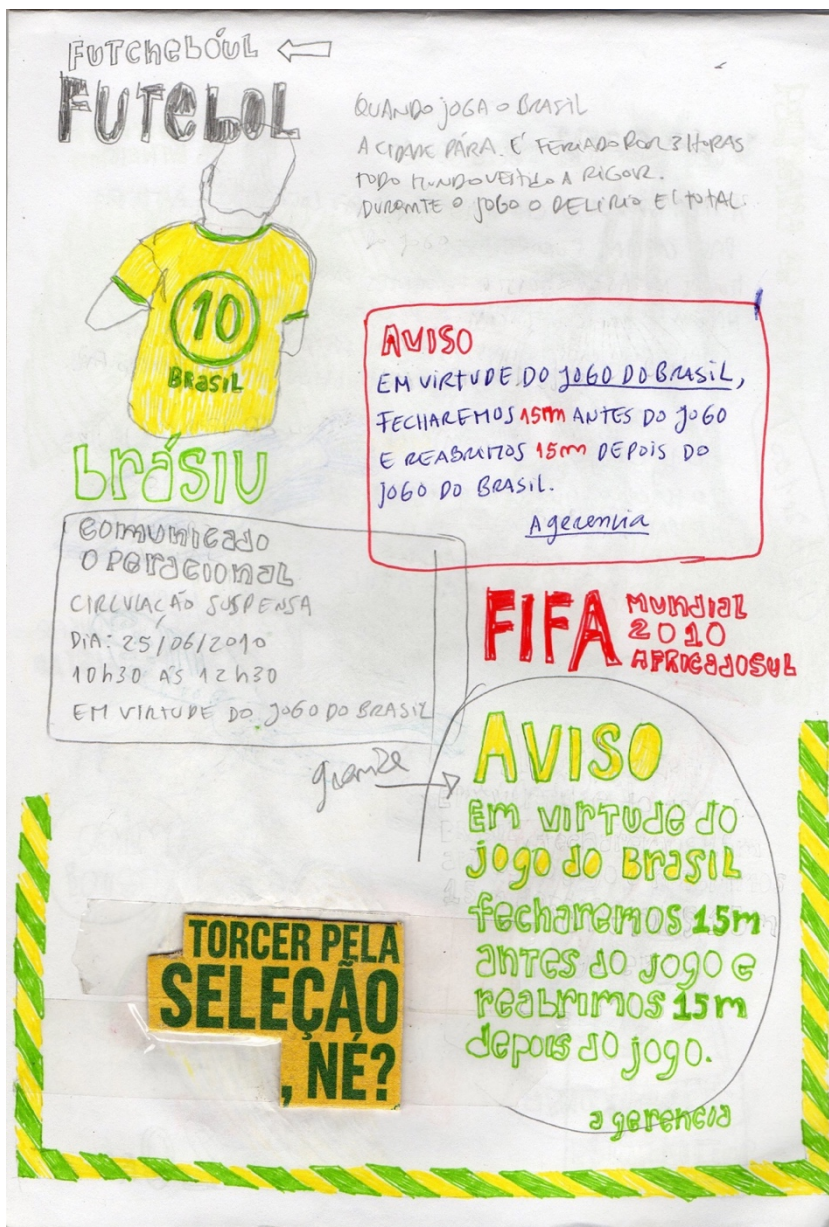 FUTCHEBÓUL
FUTEBOL
QUANDO JOGA O BRASIL
A CIDADE PÁRA. É FERIADO POR 3 HORAS
TODO MUNDO VESTIDO A RIGOR.
DURANTE O JOGO O DELÍRIO É TOTAL.
10
BRASIL
brásiu
AVISO
EM VIRTUDE DO JOGO DO BRASIL,
FECHAREMOS 15m ANTES DO JOGO
E REABRIMOS 15m DEPOIS DO
JOGO DO BRASIL.
A gerencia
comunicado
operacional
CIRCULAÇÃO SUSPENSA
DIA: 25/06/2010
10h30 ÀS 12h30
EM VIRTUDE DO JOGO DO BRASIL
FIFA
mundial
2010
AFRICADOSUL
AVISO
Em virtude do
jogo do Brasil
fecharemos 15m
antes do jogo e
reabrimos 15m
depois do jogo.
a gerencia
TORCER PELA
SELEÇÃO
, NÉ?